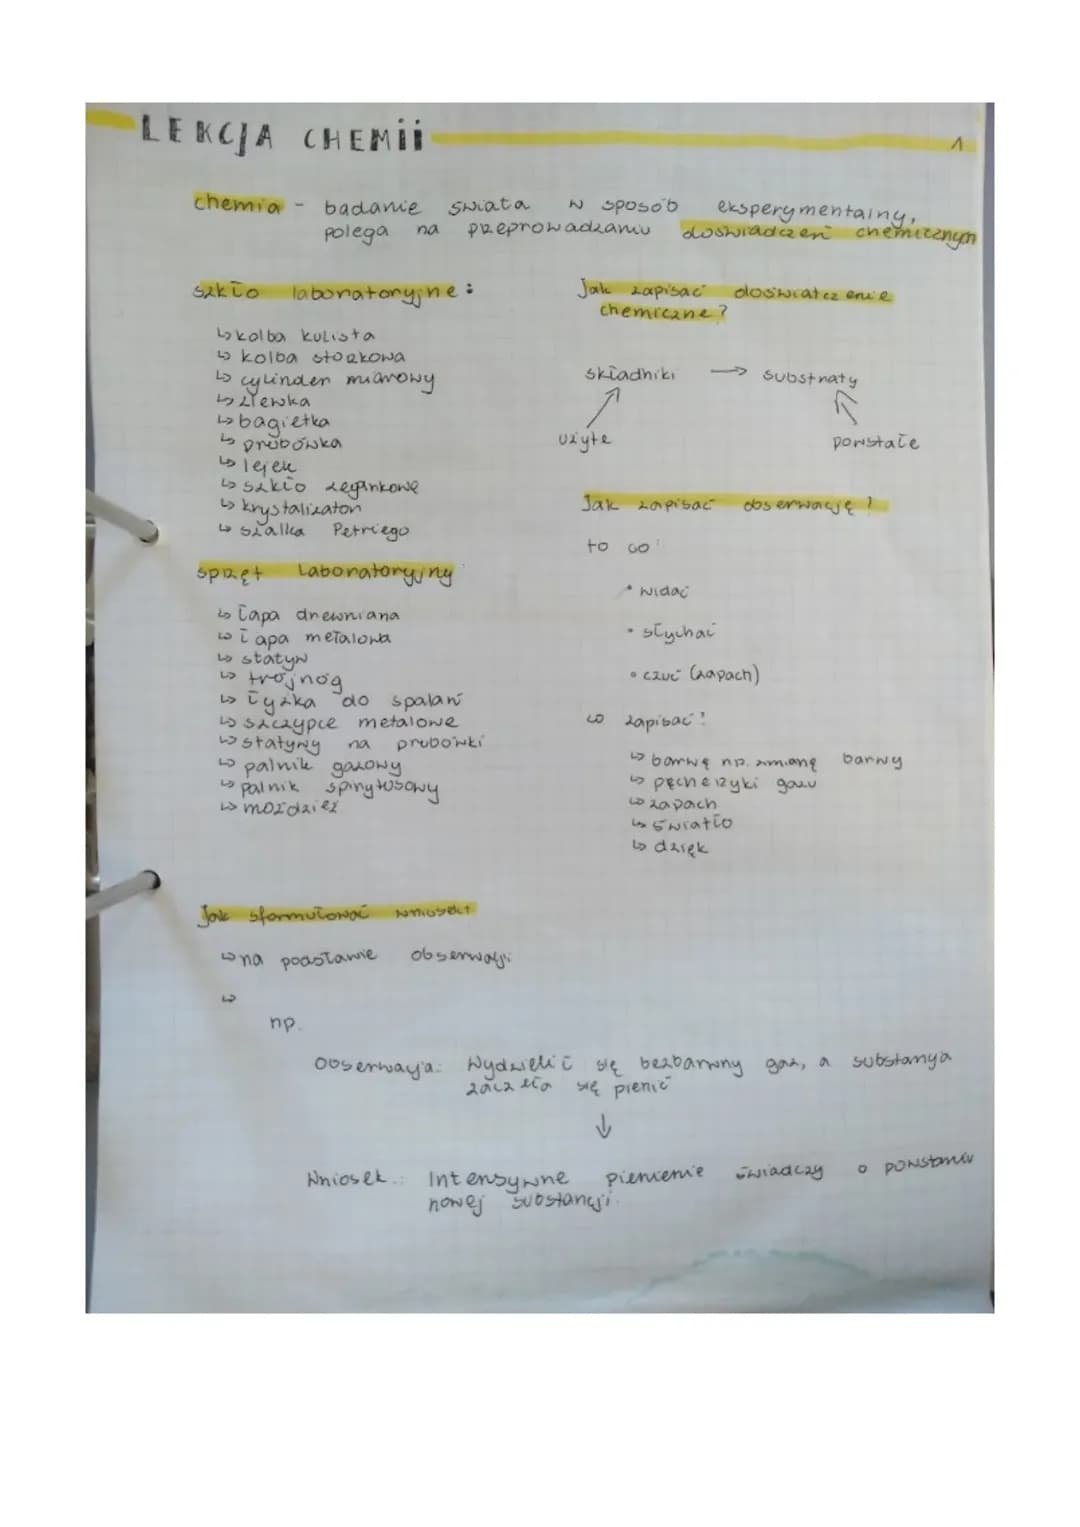 LEKCJA CHEMII
1
chemia - badanie świata w sposób eksperymentalny,
polega na przeprowadzaniu doświadczeń chemicznym
szkło laboratoryjne:
↳ kolba kulista
↳ kolba stożkowa
↳ cylinder miarowy
↳ zlewka
↳ bagietka
↳ probówka
↳ lejek
↳ szkło zegarkowe
↳ krystalizator
↳ szalka Petriego
sprzęt laboratoryjny
↳ łapa drewniana
↳ łapa metalowa
↳ statyw
↳ trójnóg
↳ łyżka do spalań
↳ szczypce metalowe
↳ statywy na probówki
↳ palnik gazowy
↳ palnik spirytusowy
↳ moździeż
Jak zapisać doświatczenie
chemiczne?
składniki → substraty
użyte
powstałe
Jak zapisać obserwację?
to co:
• widać
• słychać
• czuć (zapach)
co zapisać?
↳ barwę np. zmianę barwy
↳ pęcherzyki gazu
↳ zapach
↳ światło
↳ dzięk
Jak sformułować wniosek?
↳ na podstawie obserwacji
↳
np.
Obserwacja: Wydzielił się bezbarwny gaz, a substancja
zaczęła się pienić
↓
Wniosek.: Intensywne pienienie świadczy o powstaniu
nowej substancji.